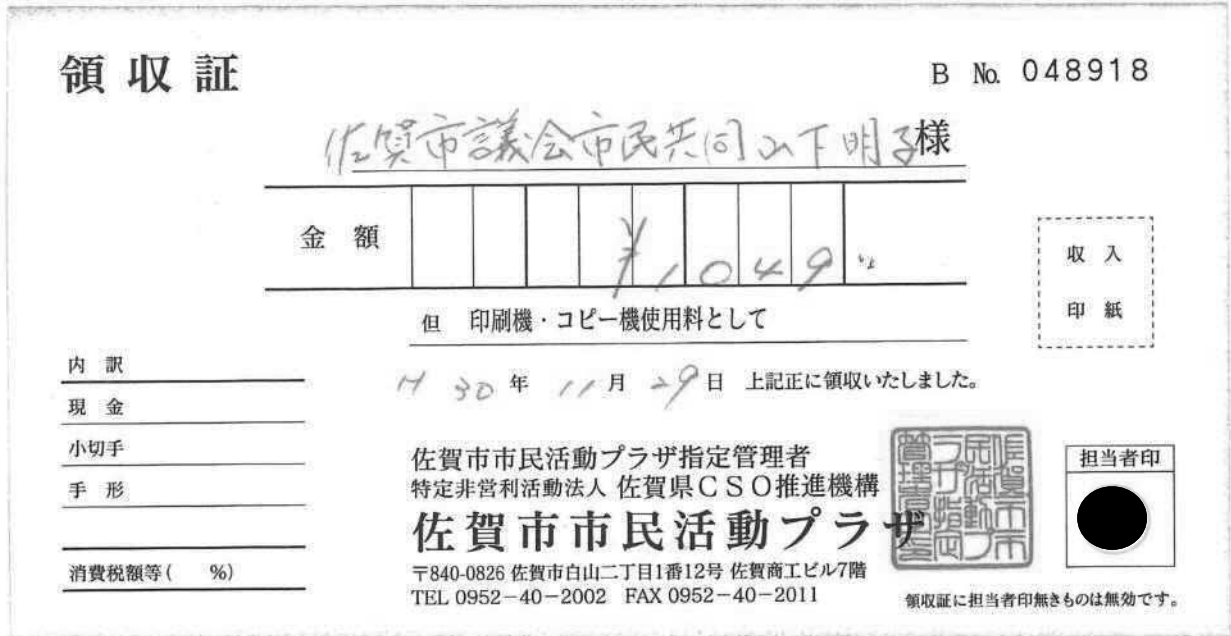 領収証
B No. 048918
佐賀市議会市民共同 山下明子様
金額 ¥1049
収入
印紙
但 印刷機・コピー機使用料として
H 30 年 11 月 29 日 上記正に領収いたしました。
内訳
現金
小切手
手形
消費税額等( %)
佐賀市市民活動プラザ指定管理者
特定非営利活動法人 佐賀県CSO推進機構
佐賀市市民活動プラザ
〒840-0826 佐賀市白山二丁目1番12号 佐賀商工ビル7階
TEL 0952-40-2002 FAX 0952-40-2011
担当者印
領収証に担当者印無きものは無効です。